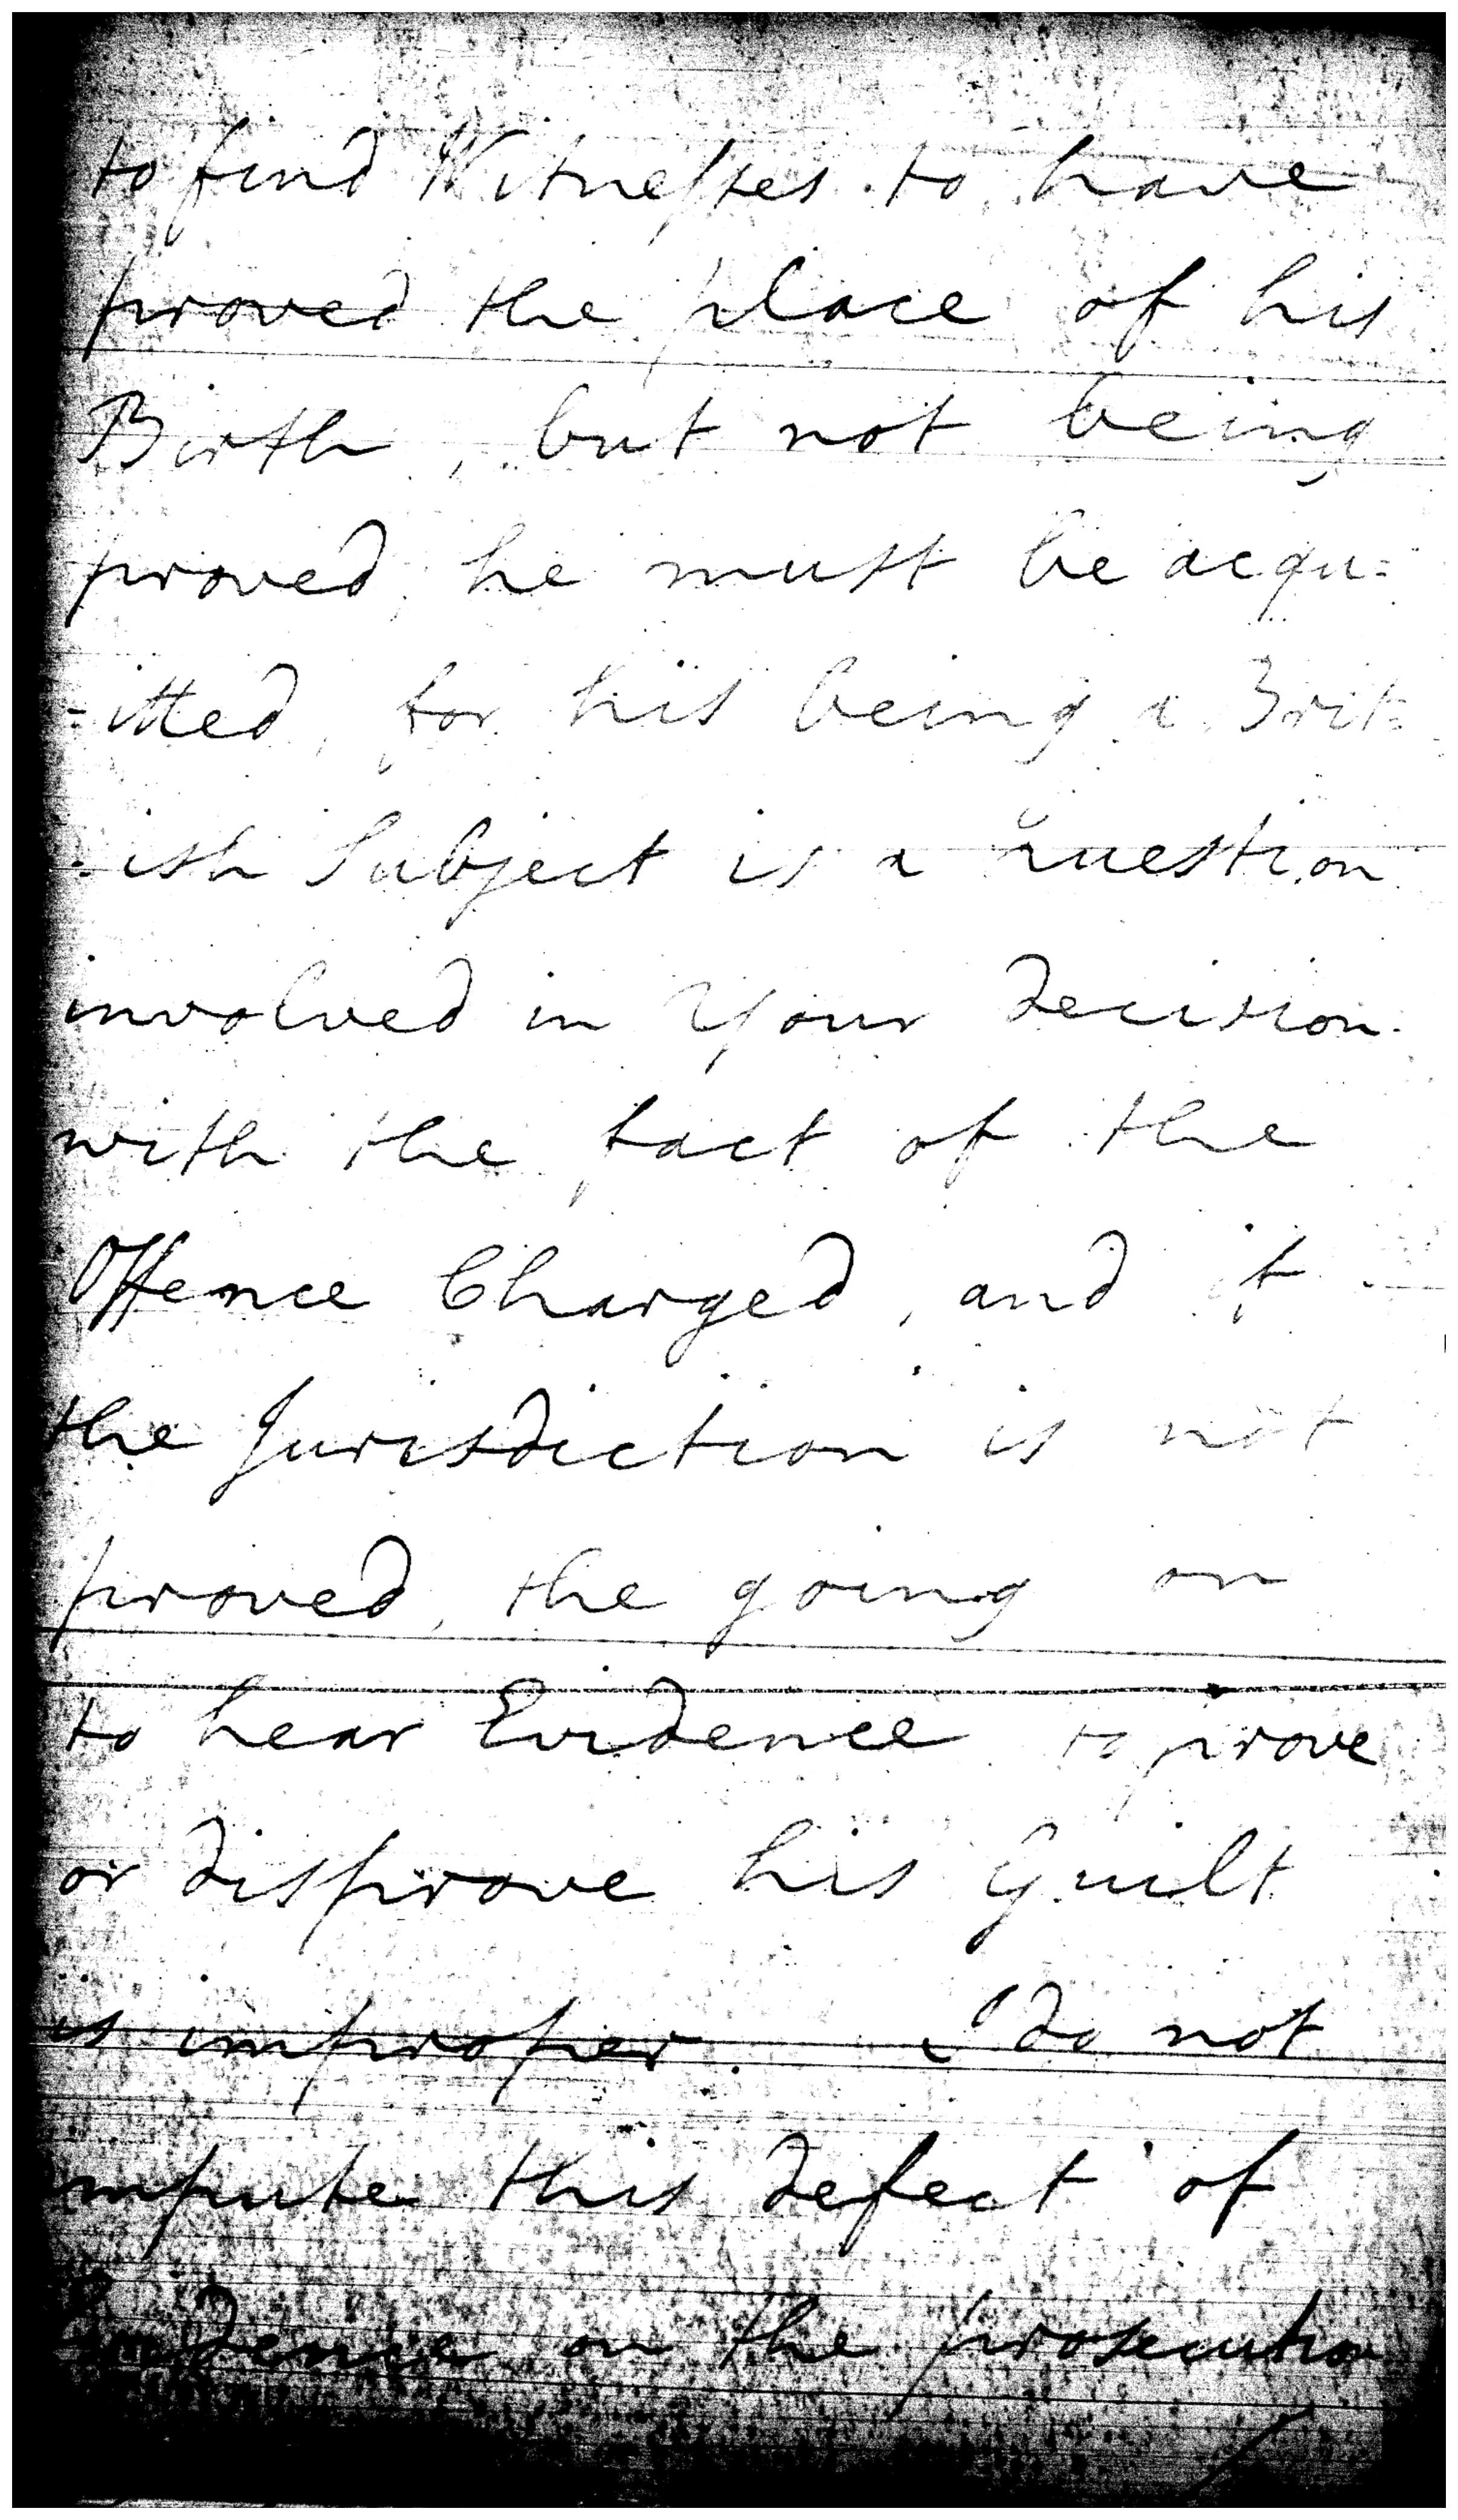 to find Witnesses to have
proved the place of his
Birth, but not being
proved, he must be acqu=
=itted, for his being a Brit=
=ish Subject is a question
involved in Your decision
with the fact of the
Offence Charged, and if
the Jurisdiction is not
proved, the going on
to hear Evidence to prove
or disprove his Guilt
is improper. I do not
impute this defect of
Evidence on the prosecution